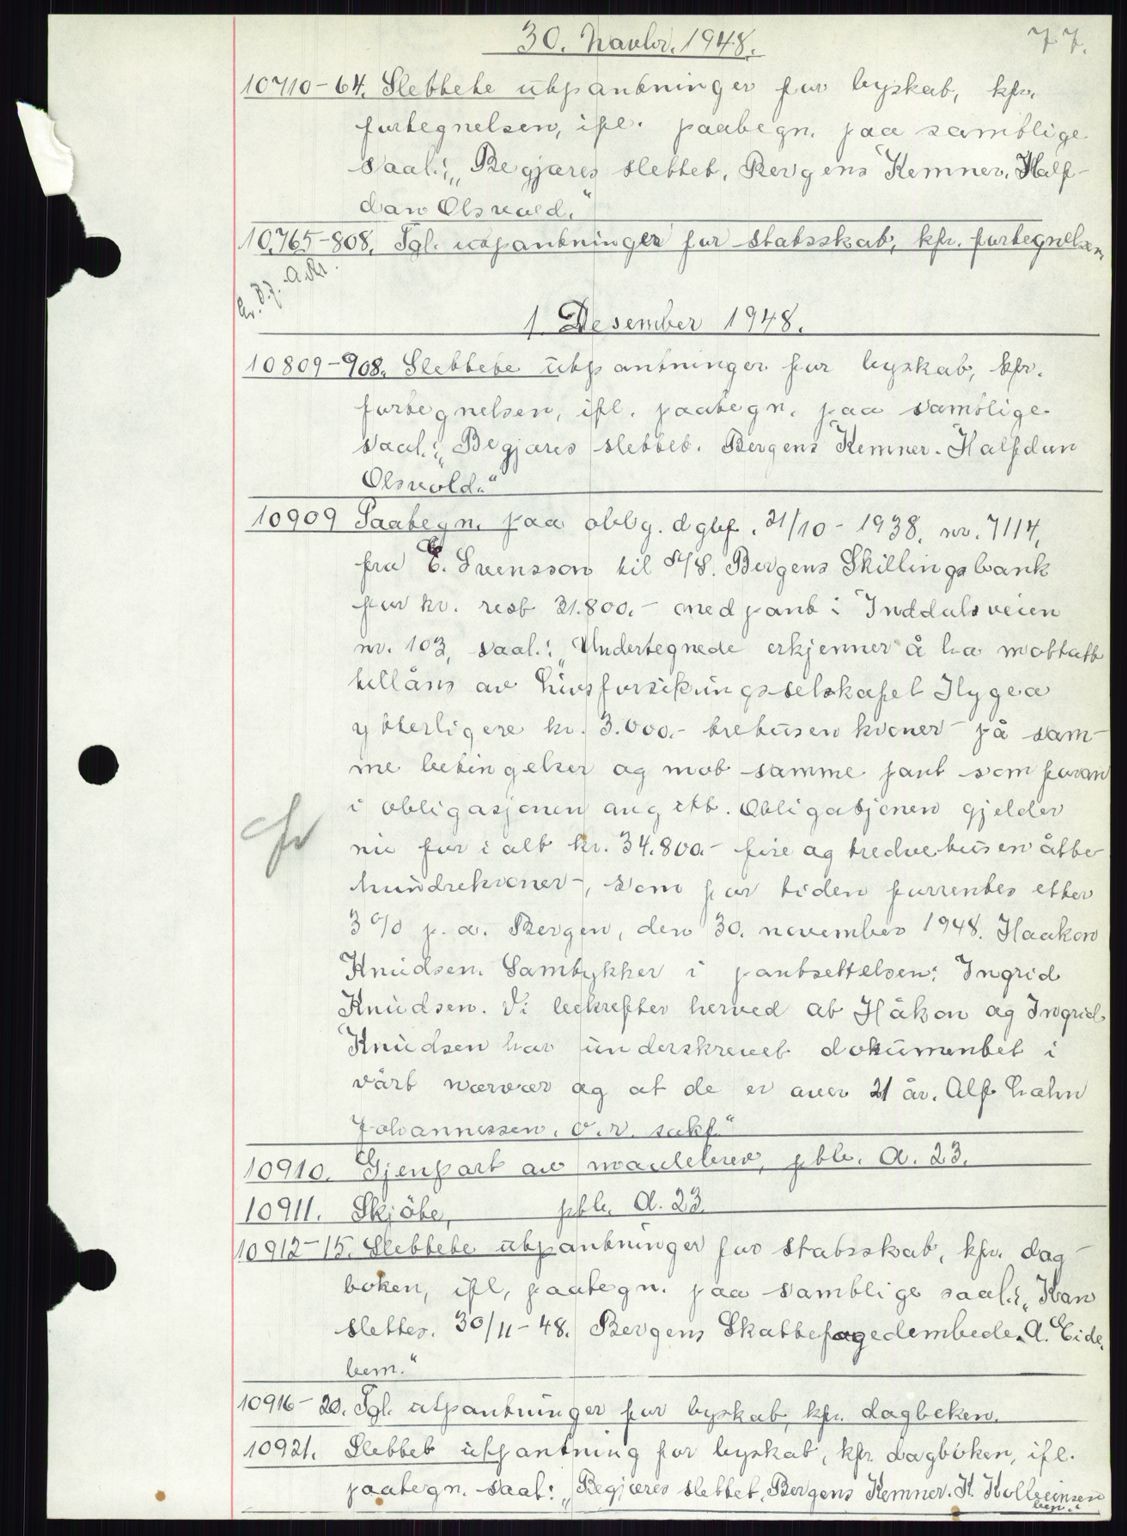 30. Novbr. 1948.
77.
10710-64. Slettete utpantninger for byskat, kfr.
fortegnelsen, ifl. paategn. paa samtlige
saal.: „Begjæres slettet. Bergens Kemner. Half-
dan Olsvold."
10765-808. Tgl. utpantninger for statsskat, kfr. fortegnelsen
1 Desember 1948.
10809-908. Slettete utpantninger for byskat, kfr.
fortegnelsen, ifl. paategn. paa samtlige
saal.: „Begjæres slettet. Bergens Kemner. Halfdan
Olsvold."
10909 Paategn. paa oblg. dgbf. 21/10-1938, nr. 7114,
fra E. Svensson til A/S. Bergens Skillingsbank
for kr. rest 31.800.- med pant i Inddalsveien
nr. 103, saal.: „Undertegnede erkjenner å ha mottatt
tillåns av Livsforsikringsselskapet Hygea
ytterligere kr. 3.000.- tretusen kroner - på sam-
me betingelser og mot samme pant som foran
i obligasjonen angitt. Obligatsjonen gjelder
nu for i alt kr. 34.800.- fire og tredve tusen åtte
hundrekroner -, som for tiden forrentes etter
3 % p. a. Bergen, den 30. november 1948. Haakon
Knudsen. Samtykker i pantsettelsen: Ingrid
Knudsen. Vi bekrefter herved at Håkon og Ingrid
Knudsen har underskrevet dokumentet i
vårt nærvær og at de er over 21 år. Alf Hahn
Johannessen. O.r. sakf."
10910. Gjenpart av maalebrev, ptb. A. 23.
10911. Skjöte, ptb. A. 23
10912-15. Slettete utpantninger for statsskat, kfr. dag-
boken, ifl, paategn. paa samtlige saal.: „Kan
slettes. 30/11-48. Bergens Skattefogedembede. A. Eide.
bem."
10916-20. Tgl. utpantninger for byskat, kfr. dagboken.
10921. Slettet utpantning for byskat, kfr dagboken, ifl.
paategn. saal: „Begjæres slettet. Bergens Kemner. K. Kolbeinsen